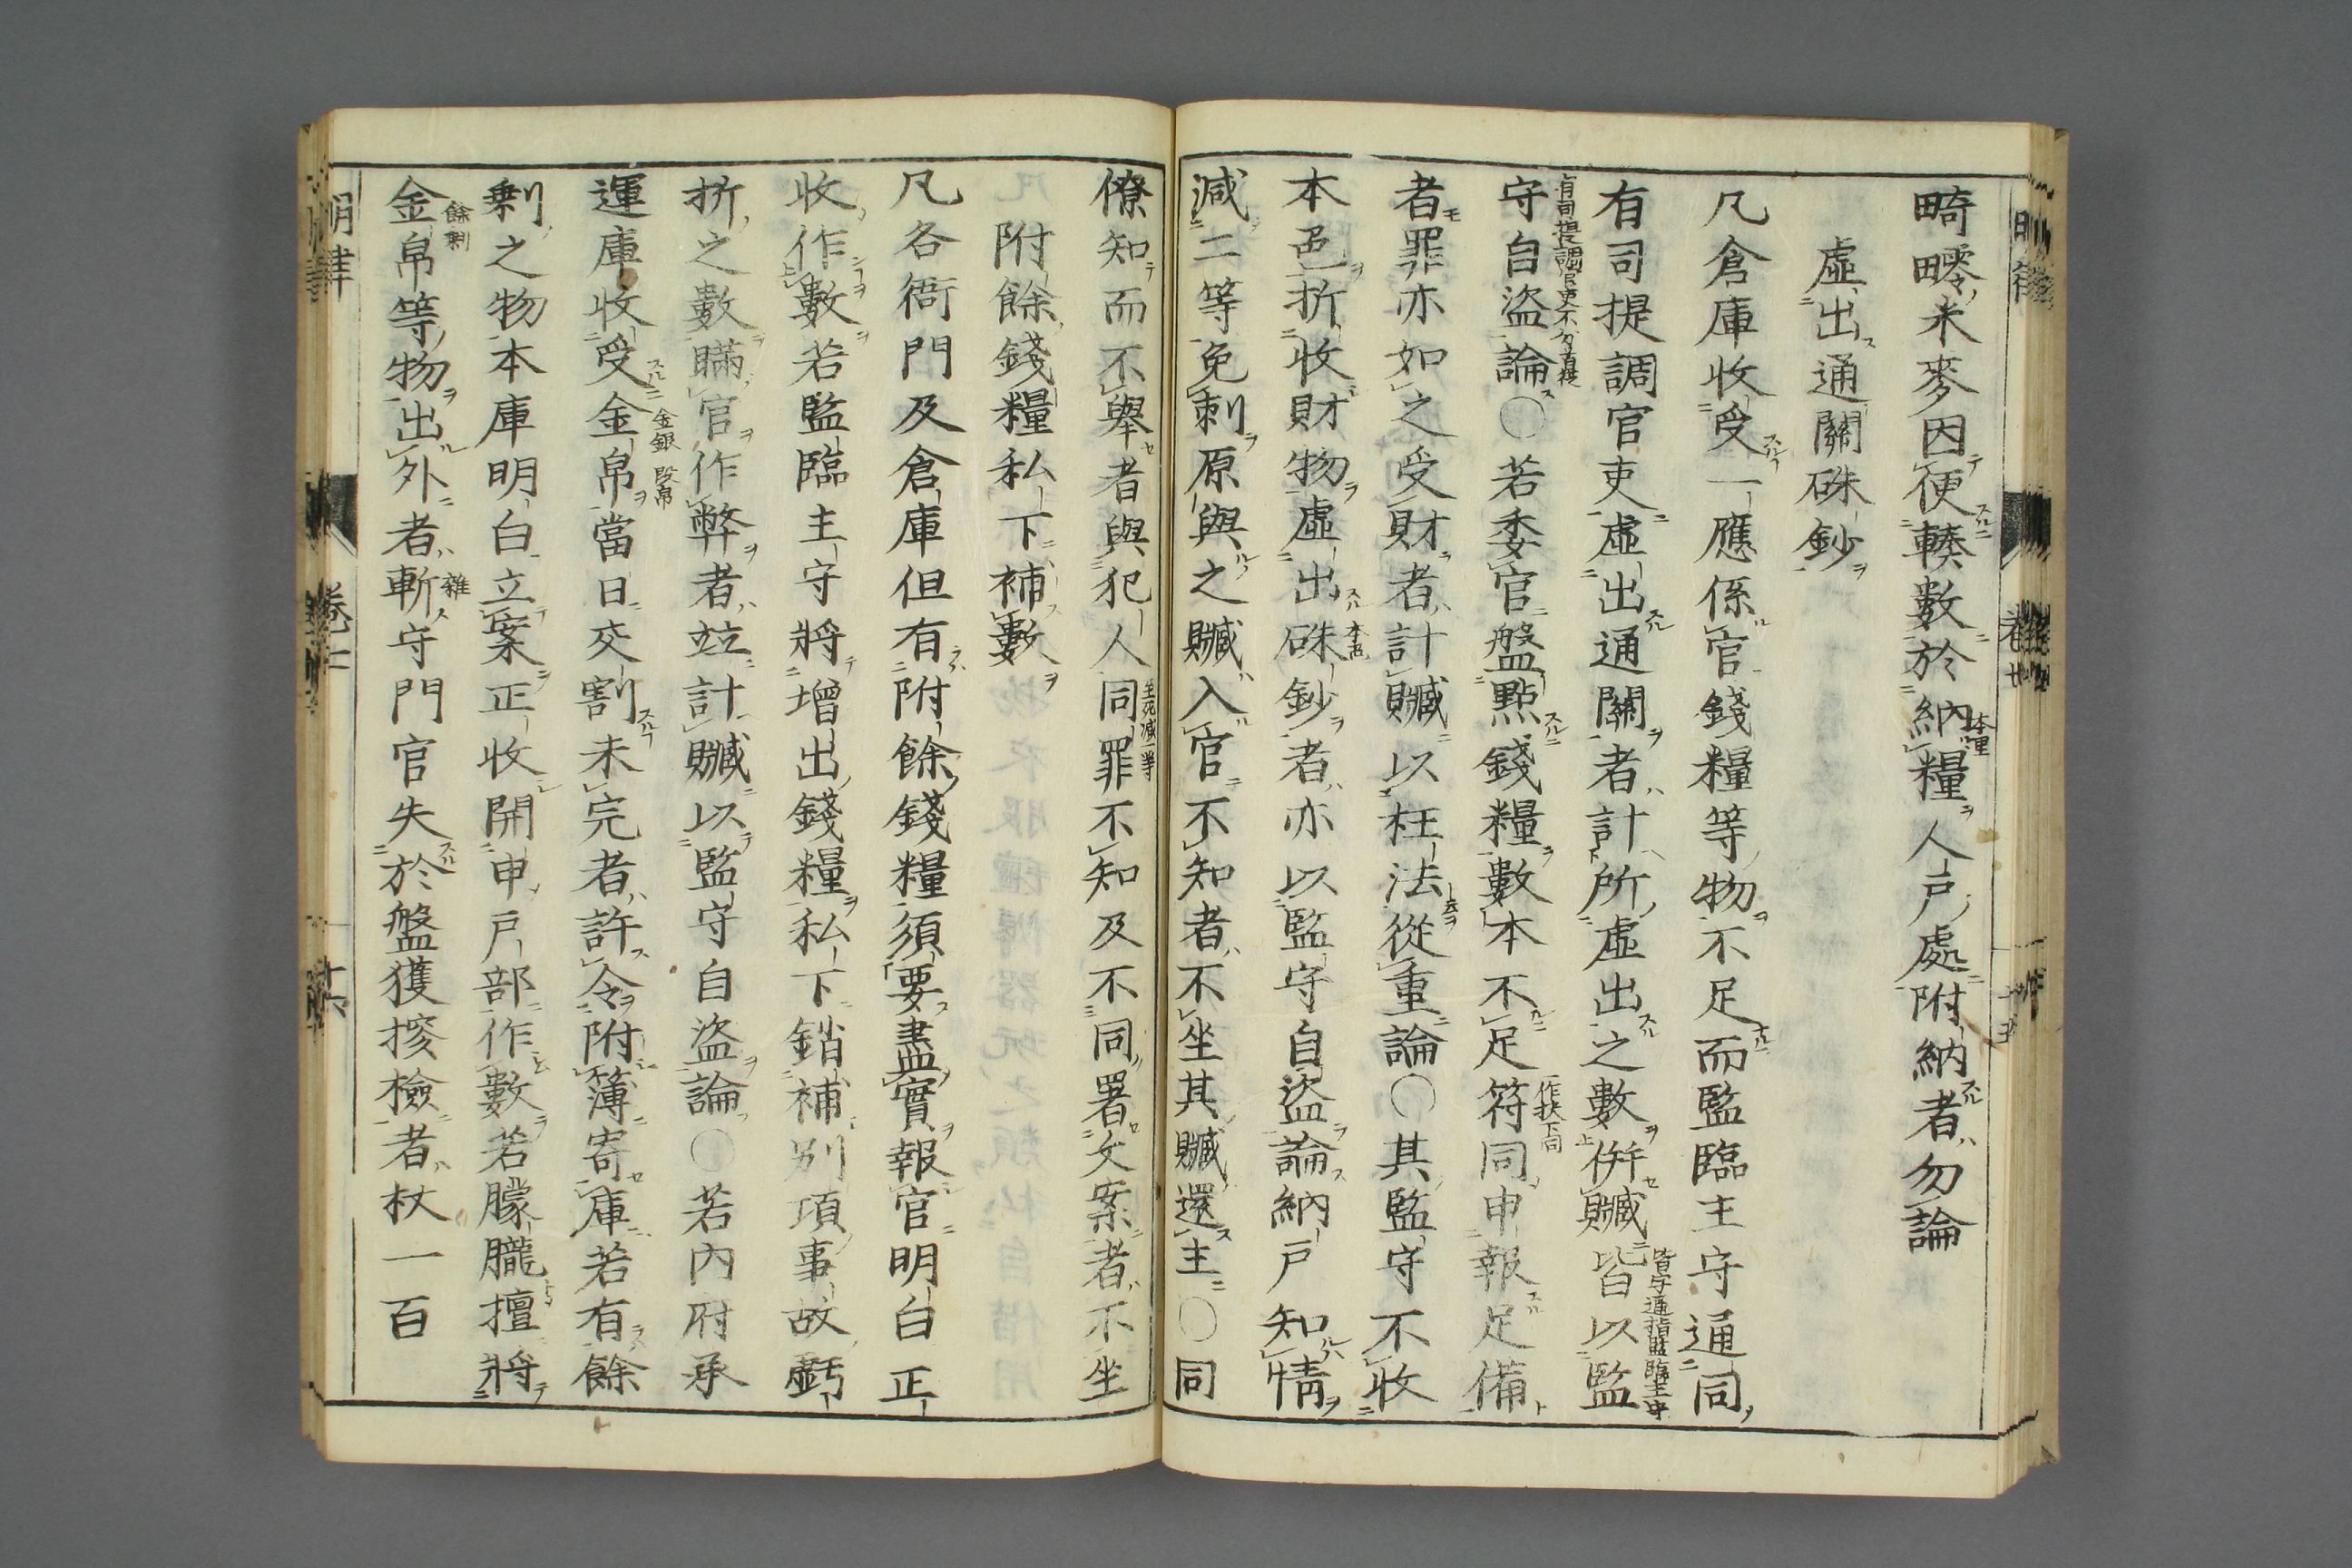 畸零米麥因便輳數於納糧人戶處附納者勿論
虛出通關硃鈔
凡倉庫收受一應係官錢糧等物不足而監臨主守通同
有司提調官吏虛出通關者計所虛出之數併贓皆以監
皆字通指監臨主守
有司提調官吏不分首從
守自盜論○若委官盤點錢糧數本不足符同申報足備
作扶下同
者罪亦如之受財者計贓以枉法從重論○其監守不收
本色折收財物虛出硃鈔者亦以監守自盜論納戶知情
減二等免刺原與之贓入官不知者不坐其贓還主○同
僚知而不舉者與犯人同罪不知及不同署文案者不坐
至死減一等
附餘錢糧私下補數
凡各衙門及倉庫但有附餘錢糧須要盡實報官明白正
收作數若監臨主守將增出錢糧私下銷補別項事故虧
折之數瞞官作弊者竝計贓以監守自盜論○若內府承
運庫收受金帛當日交割未完者許令附簿寄庫若有餘
金銀 段帛
剩之物本庫明白立案正收開申戶部作數若朦朧擅將
金帛等物出外者斬守門官失於盤獲搜檢者杖一百
餘剩
雜
明律